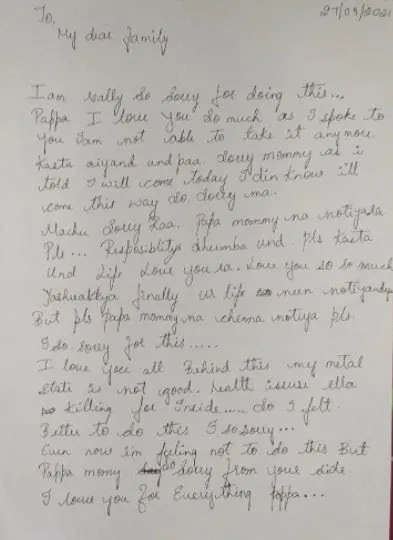 To,
27/03/2021
My dear family
I am really so sorry for doing this...
Pappa I love you so much as I spoke to
you I am not able to take it anymore.
Kasta aiyand und paa. Sorry mommy as i
told I will come today I din know it'll
come this way do. Sorry ma.
Machu Sorry Raa.. Papa mommy na
Pls... Resposiblitys dhumba und pls Kasta
Und life Love you ra. Love you so so much
finally ur life neen
But pls Papa mommy na chenna notiya pls.
I so sorry for this.....
I love you all Behind this my metal
state is not good. health issuse ella
Killing for Inside..... So I felt.
Better to do this I so sorry...
Even now i'm feeling not to do this But
Pappa momy so sorry from your side
I love you for Everything Pappa...